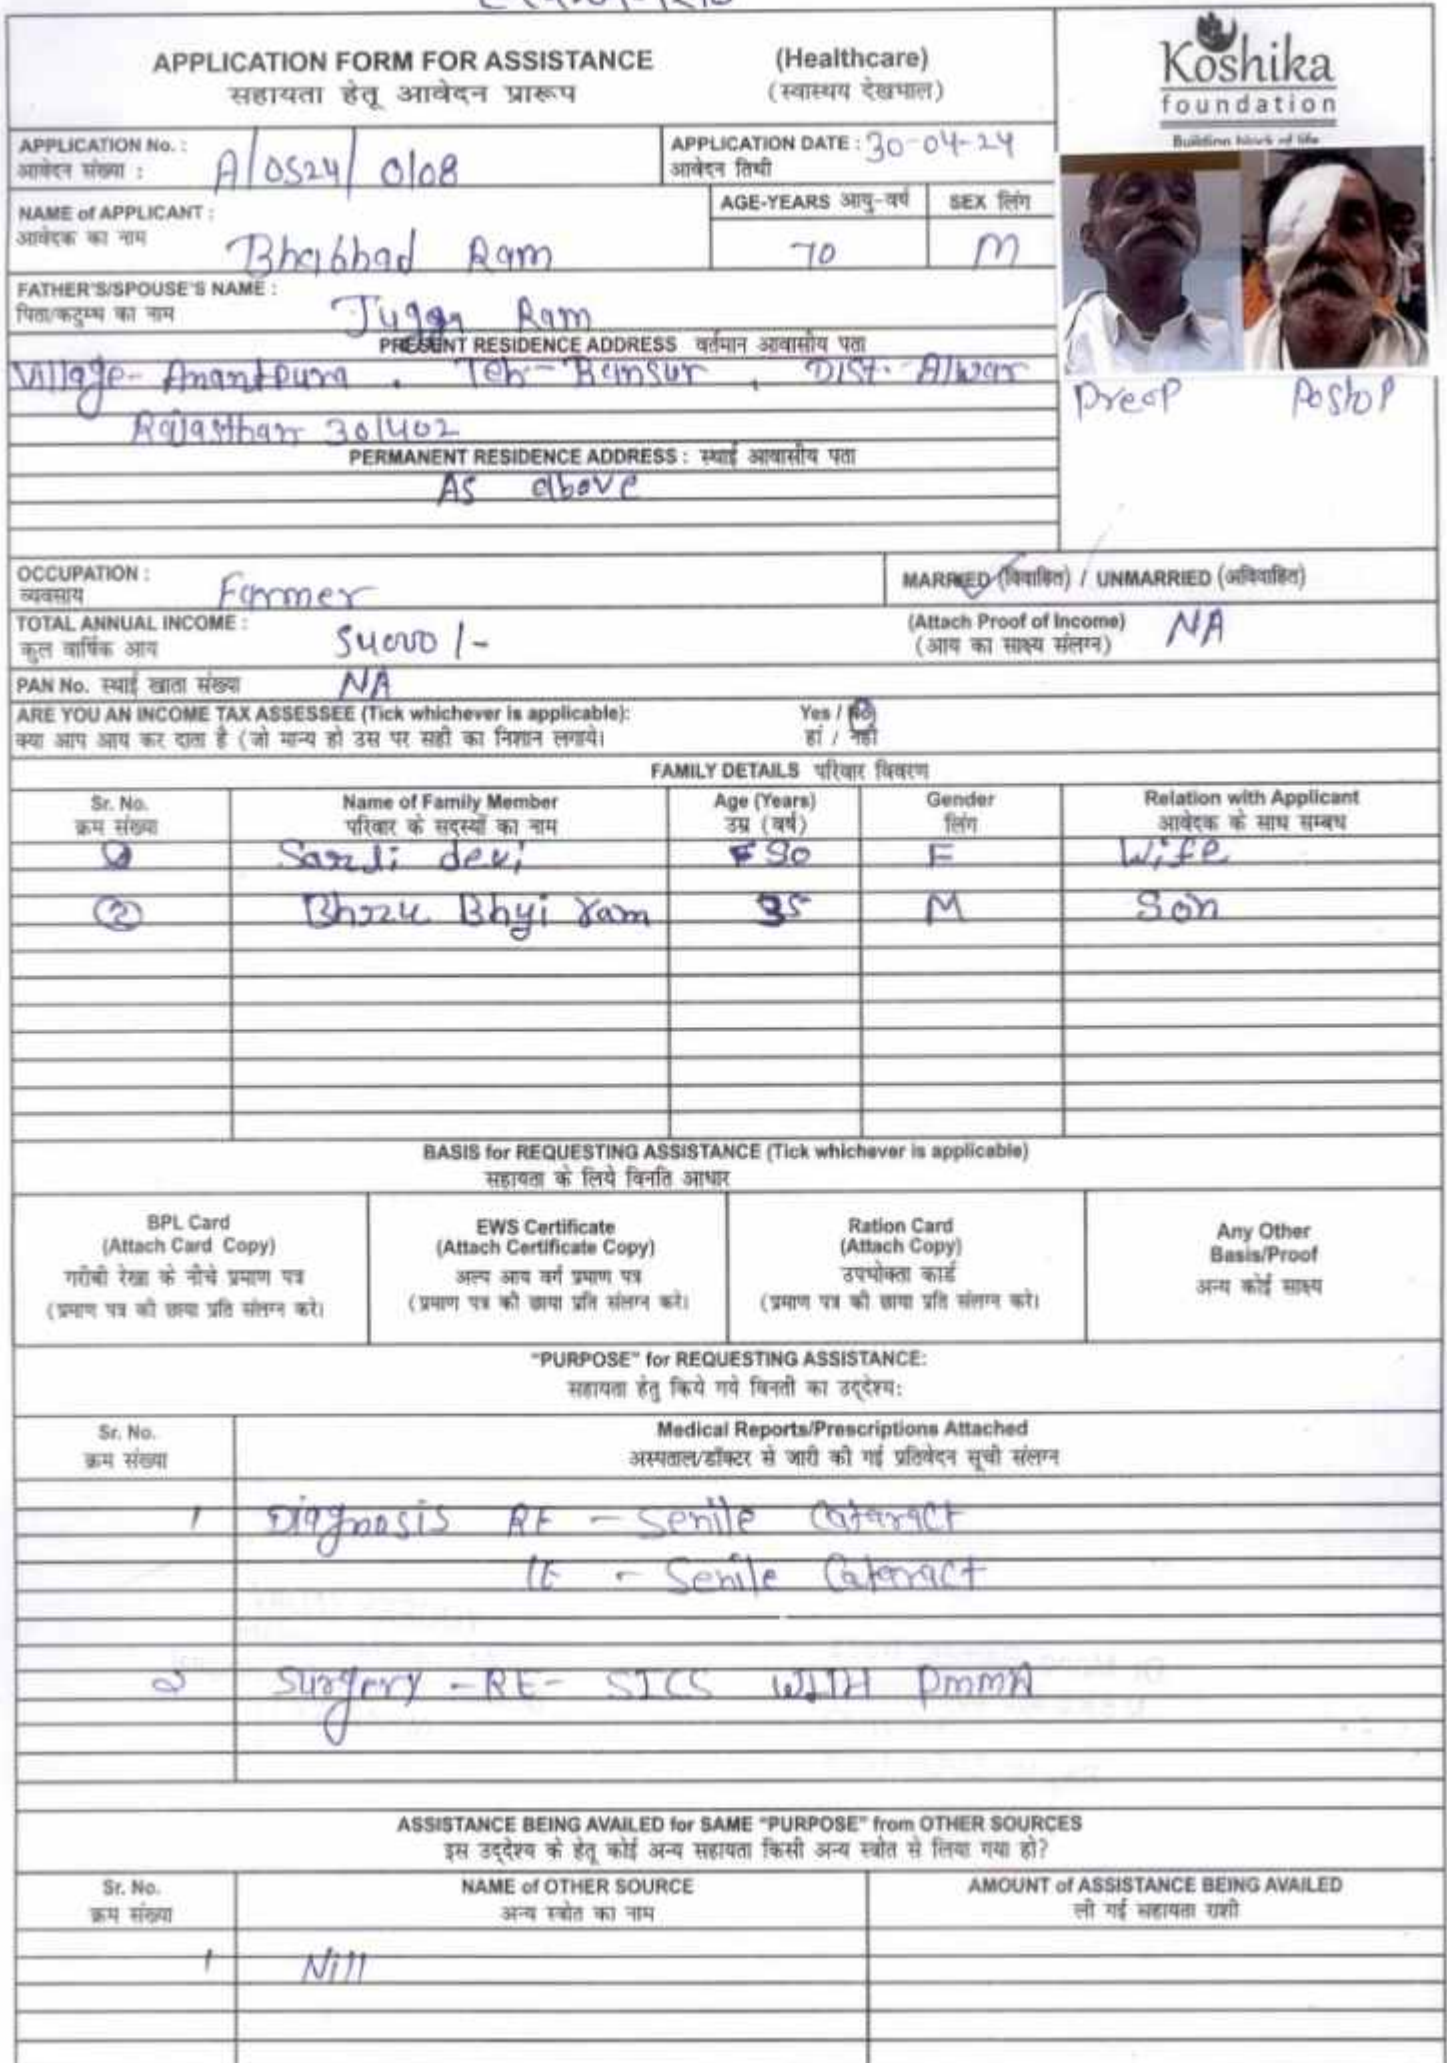 APPLICATION FORM FOR ASSISTANCE (Healthcare)
सहायता हेतू आवेदन प्रारूप (स्वास्थय देखभाल)
Koshika
foundation
Building block of life
APPLICATION No. : A/0524/0108
आवेदन संख्या :
APPLICATION DATE : 30-04-24
आवेदन तिथी
NAME of APPLICANT :
आवेदक का नाम
Ram
AGE-YEARS आयु-वर्ष 70
SEX लिंग M
FATHER'S/SPOUSE'S NAME :
पिता/कटुम्ब का नाम
Jugga Ram
Preop Postop
PRESENT RESIDENCE ADDRESS वर्तमान आवासीय पता
Village- Anantpura , Teh- Bansur , Dist- Alwar
Rajasthan 301402
PERMANENT RESIDENCE ADDRESS : स्थाई आवासीय पता
As above
OCCUPATION : Farmer
व्यवसाय
MARRIED (विवाहित) / UNMARRIED (अविवाहित)
TOTAL ANNUAL INCOME : 54000/-
कुल वार्षिक आय
(Attach Proof of Income) NA
(आय का साक्ष्य संलग्न)
PAN No. स्थाई खाता संख्या NA
ARE YOU AN INCOME TAX ASSESSEE (Tick whichever is applicable): Yes / No
क्या आप आय कर दाता है (जो मान्य हो उस पर सही का निशान लगाये। हां / नही
FAMILY DETAILS परिवार विवरण
Sr. No. Name of Family Member Age (Years) Gender Relation with Applicant
क्रम संख्या परिवार के सदस्यों का नाम उम्र (वर्ष) लिंग आवेदक के साथ सम्बध
devi F Wife
2 ram 35 M Son
BASIS for REQUESTING ASSISTANCE (Tick whichever is applicable)
सहायता के लिये विनति आधार
BPL Card
(Attach Card Copy)
गरीबी रेखा के नीचे प्रमाण पत्र
(प्रमाण पत्र की छाया प्रति संलग्न करे।
EWS Certificate
(Attach Certificate Copy)
अल्प आय वर्ग प्रमाण पत्र
(प्रमाण पत्र की छाया प्रति संलग्न करे।
Ration Card
(Attach Copy)
उपभोक्ता कार्ड
(प्रमाण पत्र की छाया प्रति संलग्न करे।
Any Other
Basis/Proof
अन्य कोई साक्ष्य
"PURPOSE" for REQUESTING ASSISTANCE:
सहायता हेतु किये गये विनती का उद्देश्य:
Sr. No. Medical Reports/Prescriptions Attached
क्रम संख्या अस्पताल/डॉक्टर से जारी की गई प्रतिवेदन सूची संलग्न
1 Diagnosis RE - Senile Cataract
LE - Senile Cataract
2 Surgery - RE - SICS WITH PMMA
ASSISTANCE BEING AVAILED for SAME "PURPOSE" from OTHER SOURCES
इस उद्देश्य के हेतू कोई अन्य सहायता किसी अन्य स्त्रोत से लिया गया हो?
Sr. No. NAME of OTHER SOURCE AMOUNT of ASSISTANCE BEING AVAILED
क्रम संख्या अन्य स्त्रोत का नाम ली गई सहायता राशी
1 Nill